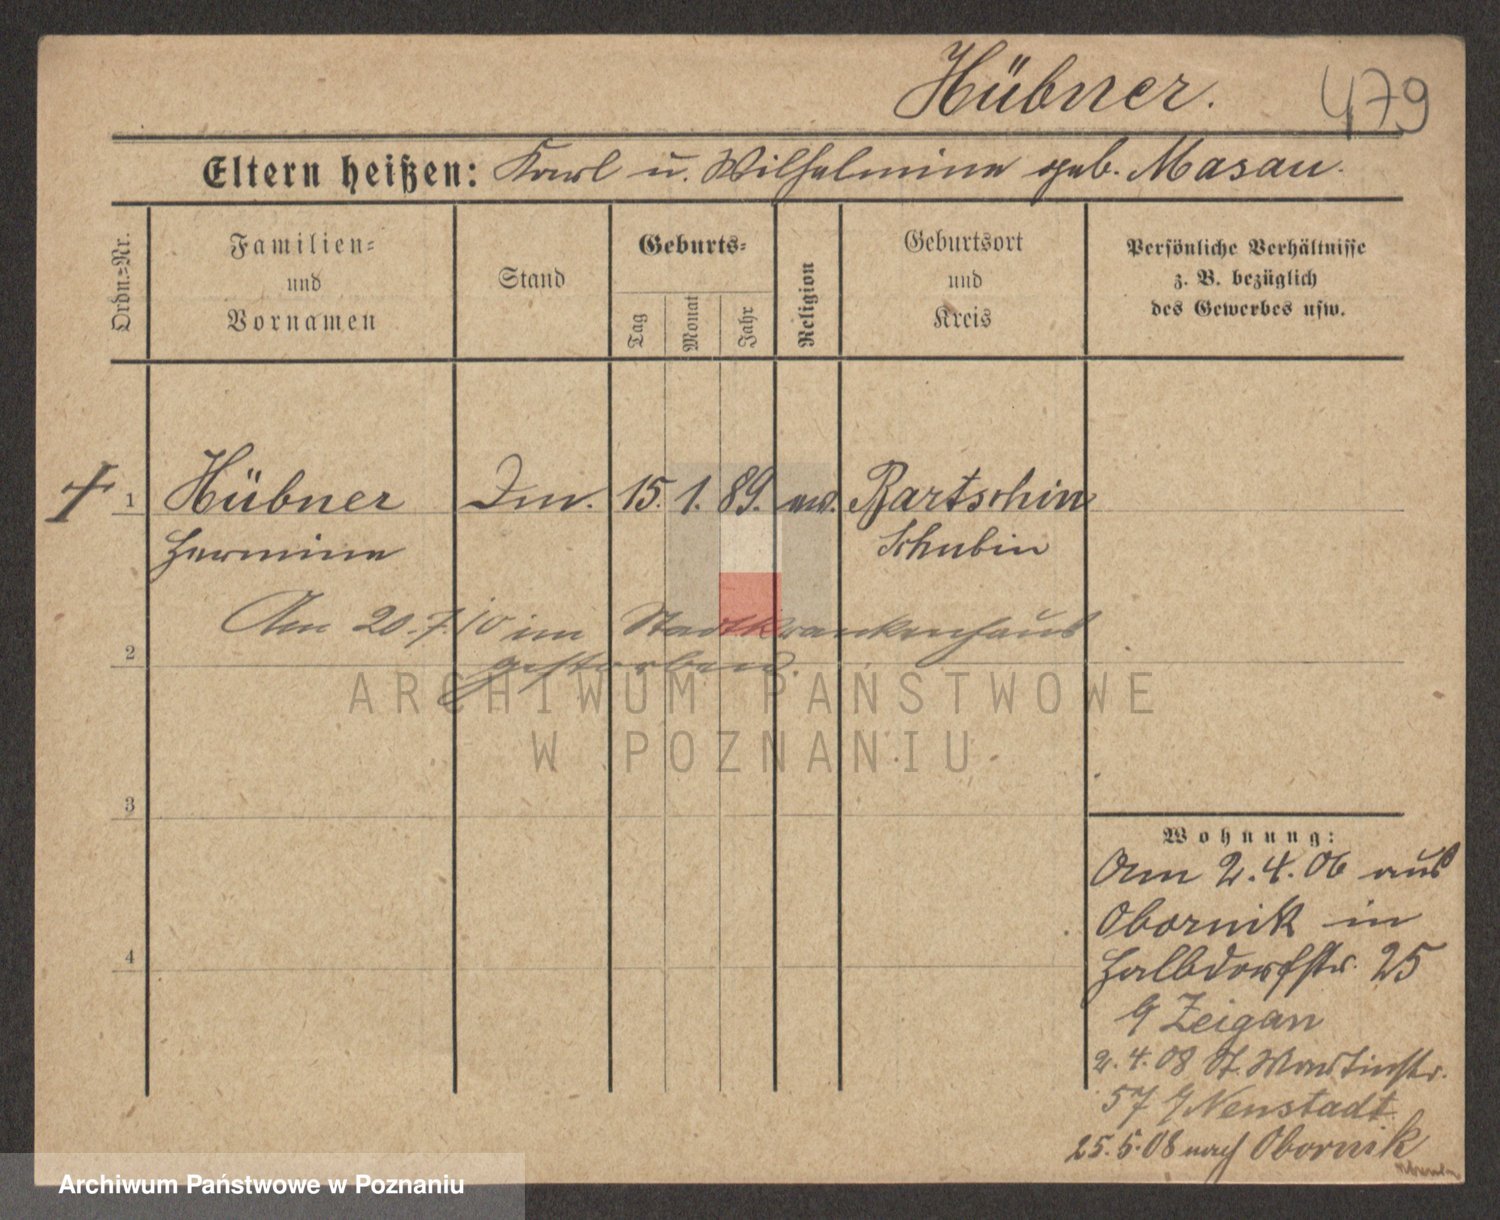 Hübner.
479
Eltern heißen: Karl u. Wilhelmine geb. Masau.
Ordn.-Nr.
Familien-
und
Vornamen
Stand
Geburts-
Tag
Monat
Jahr
Religion
Geburtsort
und
Kreis
Persönliche Verhältnisse
z. B. bezüglich
des Gewerbes usw.
+ 1 Hübner Dm. 15. 1. 89. ev. Bartschin
Hermine Schubin
Am 20.7.10 im Stadtkrankenhaus
gestorben.
2
3
4
Wohnung:
Am 2.4.06 aus
Obornik in
Halbdorfstr. 25
Zeigan
2.4.08 St. Martinstr.
57 Neustadt
25.5.08 nach Obornik
ARCHIWUM PAŃSTWOWE
W POZNANIU
Archiwum Państwowe w Poznaniu